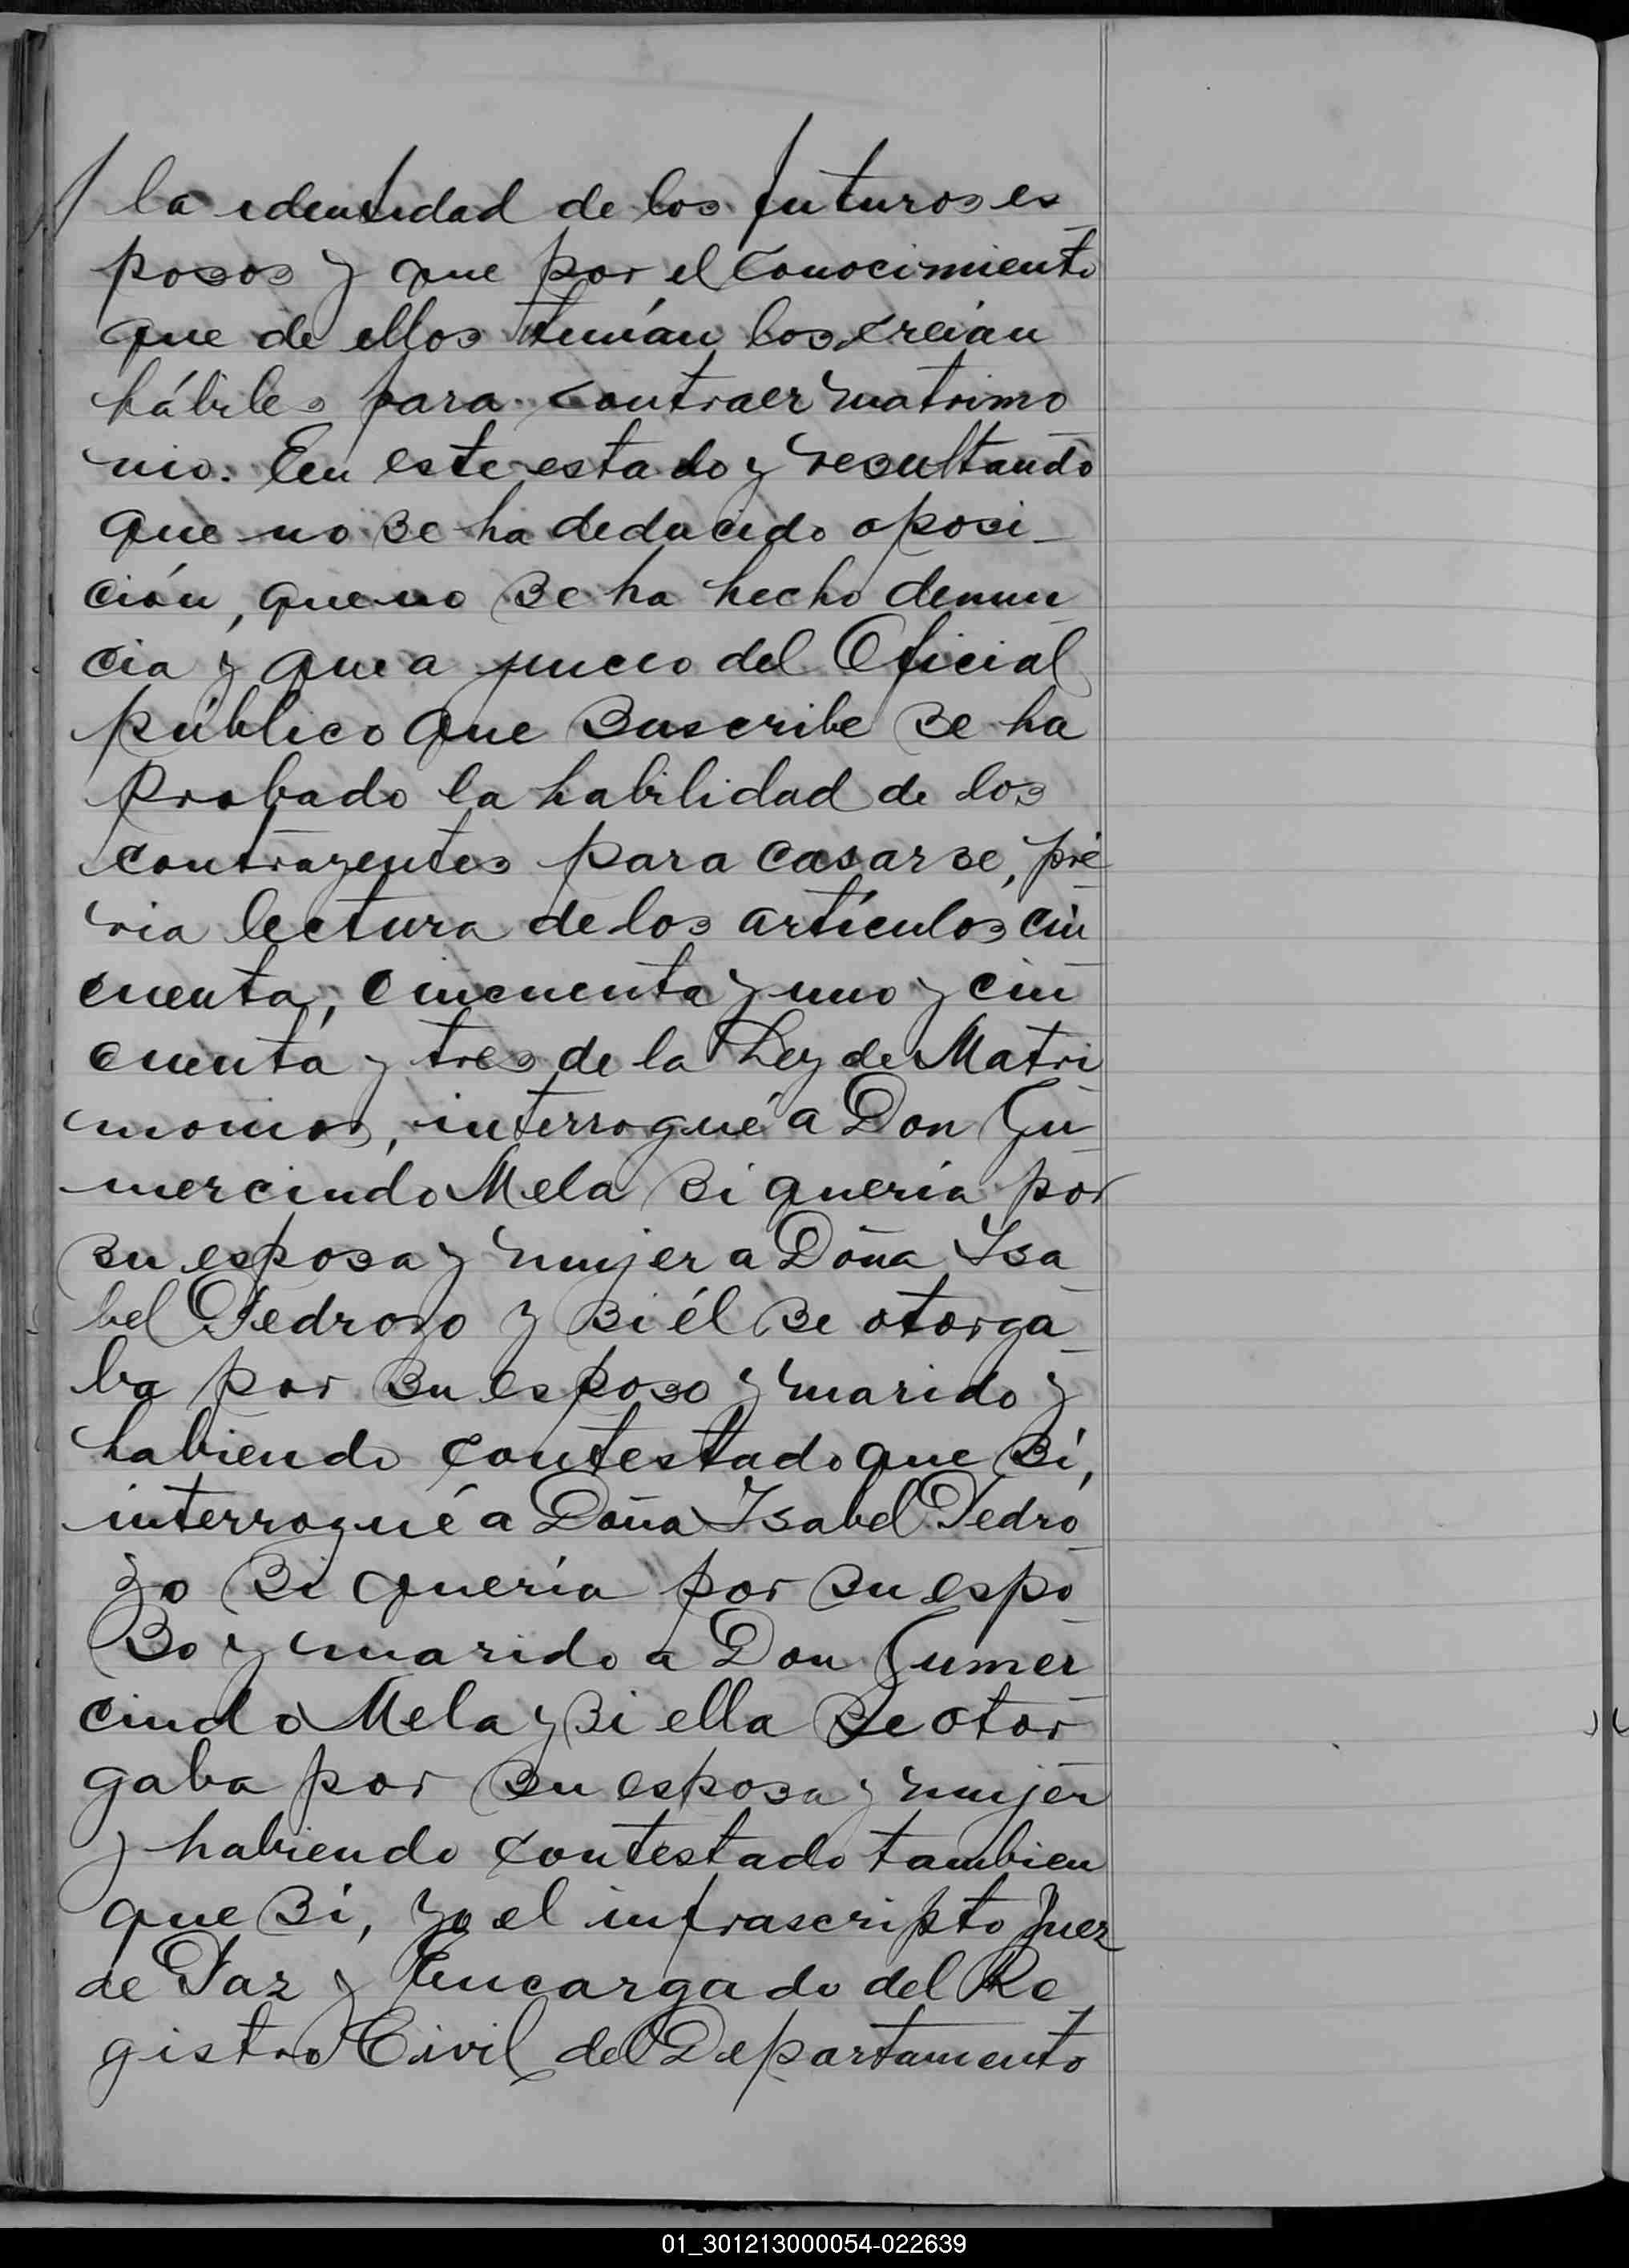 la identidad de los futuros es
posos y que por el conocimiento
que de ellos tenían los creían
hábiles para contraer matrimo
nio. En este estado y resultando
que no se ha deducido oposi-
ción, que no se ha hecho denun
cia y que a juicio del Oficial
público que suscribe se ha
probado la habilidad de los
contrayentes para casarse, pre
via lectura de los artículos cin
cuenta, cincuenta y uno y cin
cuenta y tres de la Ley de Matri
monios, interrogué a Don Gu
mercindo Mela si quería por
su esposa y mujer a Doña Isa
bel Pedrozo y si él se otorga
ba por su esposo y marido y
habiendo contestado que si,
interrogué a Doña Isabel Pedro
zo si quería por su espo
so y marido a Don Gumer
cindo Mela y si ella se otor
gaba por su esposa y mujer
y habiendo contestado tambien
que si, yo el infrascripto Juez
de Paz y Encargado del Re
gistro Civil del Departamento
01_301213000054-022639